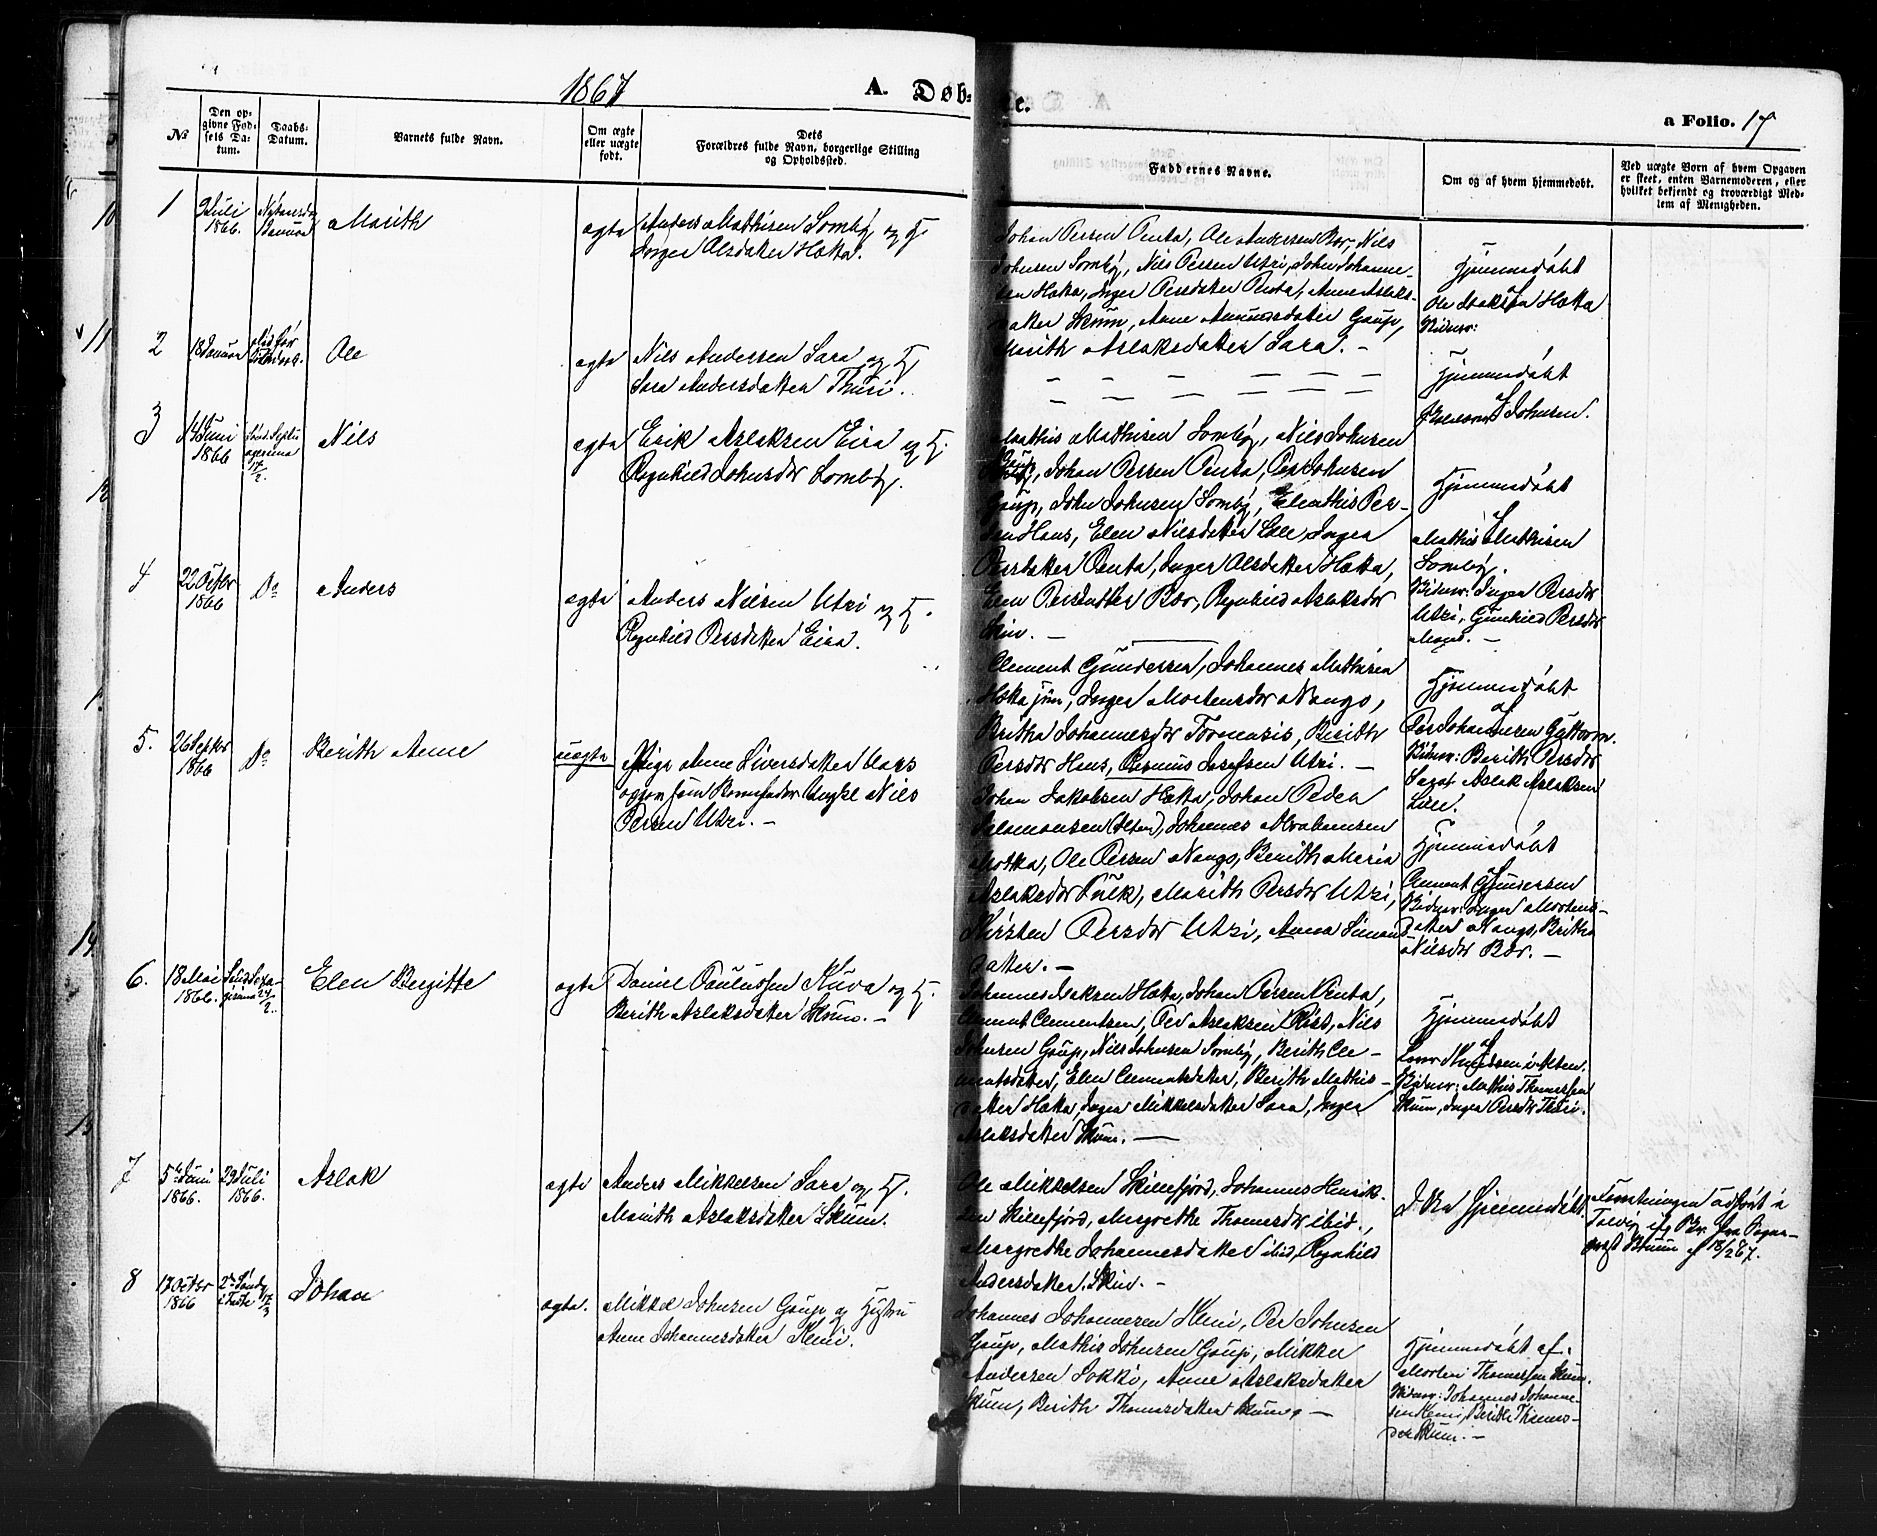 1867
A. Døb-
te.
a Folio. 17
№
Den op-
givne Fød-
sels Da-
tum.
Daabs-
Datum.
Barnets fulde Navn.
Om ægte
eller uægte
født.
Dets
Forældres fulde Navn, borgerlige Stilling
og Opholdssted.
Faddernes Navne.
Om og af hvem hjemmedøbt.
Ved uægte Børn af hvem Opgaven
er skeet, enten Barnemoderen, eller
hvilket bekjendt og troværdigt Med-
lem af Menigheden.
1
Juli
1866.
Marith
ægte
Anders Mathisen Somby og H.
Inger Olsdatter Hætta.
Johan Persen Penta, Ole Andersen Bær, Nils
Johnsen Somby, Nils Persen Utzi, John Johanne-
sen Hætta, Inger Persdatter Penta, Anne Aslaks-
datter Skum, Anne Amundsdatter Gaup,
Marith Aslaksdatter Sara. —
Hjemmedøbt
af
Ole Isaksen Hætta
Vidner:
2
18 Januar
Ole
ægte
Nils Andersen Sara og H.
Sara Andersdatter Thuri.
— — — — — —
Hjemmedøbt
af
Johnsen.
3
14 Juni
1866
Sønd. Septu
agesima
17/2.
Nils
ægte
Erik Aslaksen Eira og H.
Ragnhild Johnsdr Somby.
Mathis Mathisen Somby, Nils Johnsen
Gaup, Johan Persen Penta, Per Johnsen
Gaup, John Johnsen Somby, Mathis Per-
sen Hans, Elen Nilsdatter Lille, Inger
Persdatter Penta, Inger Olsdatter Hætta,
Elen Persdatter Bær, Ragnhild Aslaksdr
Skum. —
Hjemmedøbt
af
Mathis Mathisen
Somby.
Vidner: Inger Persdr
Utzi, Gunhild Persdr
4
22 Octbr
1866
Do
Anders
ægte
Anders Nilsen Utzi og H.
Ragnhild Persdatter Eira.
Clement Gundersen, Johannes Mathisen
Hætta jun, Inger Mortensdr Nango,
Britha Johannesdr Tornensis, Berith
Persdr Hans, Rasmus Josefsen Utzi. —
Hjemmedøbt
af
Per Johannesen Guttorm.
Vidner: Berith Persdr
Sara, Aslak Aslaksen
Lille.
5.
26 Septbr
1866
Do
Berith Anne
uægte
Pige Anne Siversdatter Vars
og som Barnefader Ungkl Nils
Persen Utzi. —
Johan Jakobsen Hætta, Johan Peder
Salamonsen (Alten), Johannes Abrahamsen
Motka, Ole Persen Nango, Berith Maria
Aslaksdr Tulk, Marith Persdr Utzi,
Kirsten Persdr Utzi, Anna Simons-
datter. —
Hjemmedøbt
af
Clement Gundersen
Vidner: Inger Mortens-
datter Nango, Britha
Nilsdr Bær. —
6.
18 Mai
1866.
Sønd Sexa-
gesima 24/2.
Elen Birgitte
ægte
Daniel Paulussen Kuva og H.
Berith Aslaksdatter Skum. —
Johannes Isaksen Hætta, Johan Persen Penta,
Clement Clementsen, Per Aslaksen Rist, Nils
Johnsen Gaup, Nils Johnsen Somby, Berith Cle-
mentsdatter, Elen Clementsdatter, Berith Mathis-
datter Hætta, Inger Mikkelsdatter Sara, Inger
Aslaksdatter Skum. —
Hjemmedøbt
af
Knudsen i Alten.
Vidner: Mathis Thomessen
Skum, Inger Persdr Thuri.
7
5te Juni
1866.
29 Juli
1866.
Aslak
ægte
Anders Mikkelsen Sara og H.
Marith Aslaksdatter Skum.
Ole Mikkelsen Skillefjord, Johannes Henrik-
sen Skillefjord, Margrethe Thomesdr ibid.,
Margrethe Johannesdatter ibid, Ragnhild
Andersdatter Skum. —
Ikke Hjemmedøbt.
Forretningen udført i
Talvig
præst af 18/2 67.
8
17 Octbr
1866
2den Sønd.
i Faste 17/3
Johan
ægte.
Mikkel Johnsen Gaup og Hustru
Anne Johannesdatter Kemi.
Johannes Johannesen Kemi, Per Johnsen
Gaup, Mathis Johnsen Gaup, Mikkel
Andersen Jokki, Anne Aslaksdatter
Skum, Berith Thomesdatter Skum. —
Hjemmedøbt af:
Morten Thomessen Skum.
Vidner: Johannes Johanne-
sen Kemi, Berith Thomes-
datr Skum. —